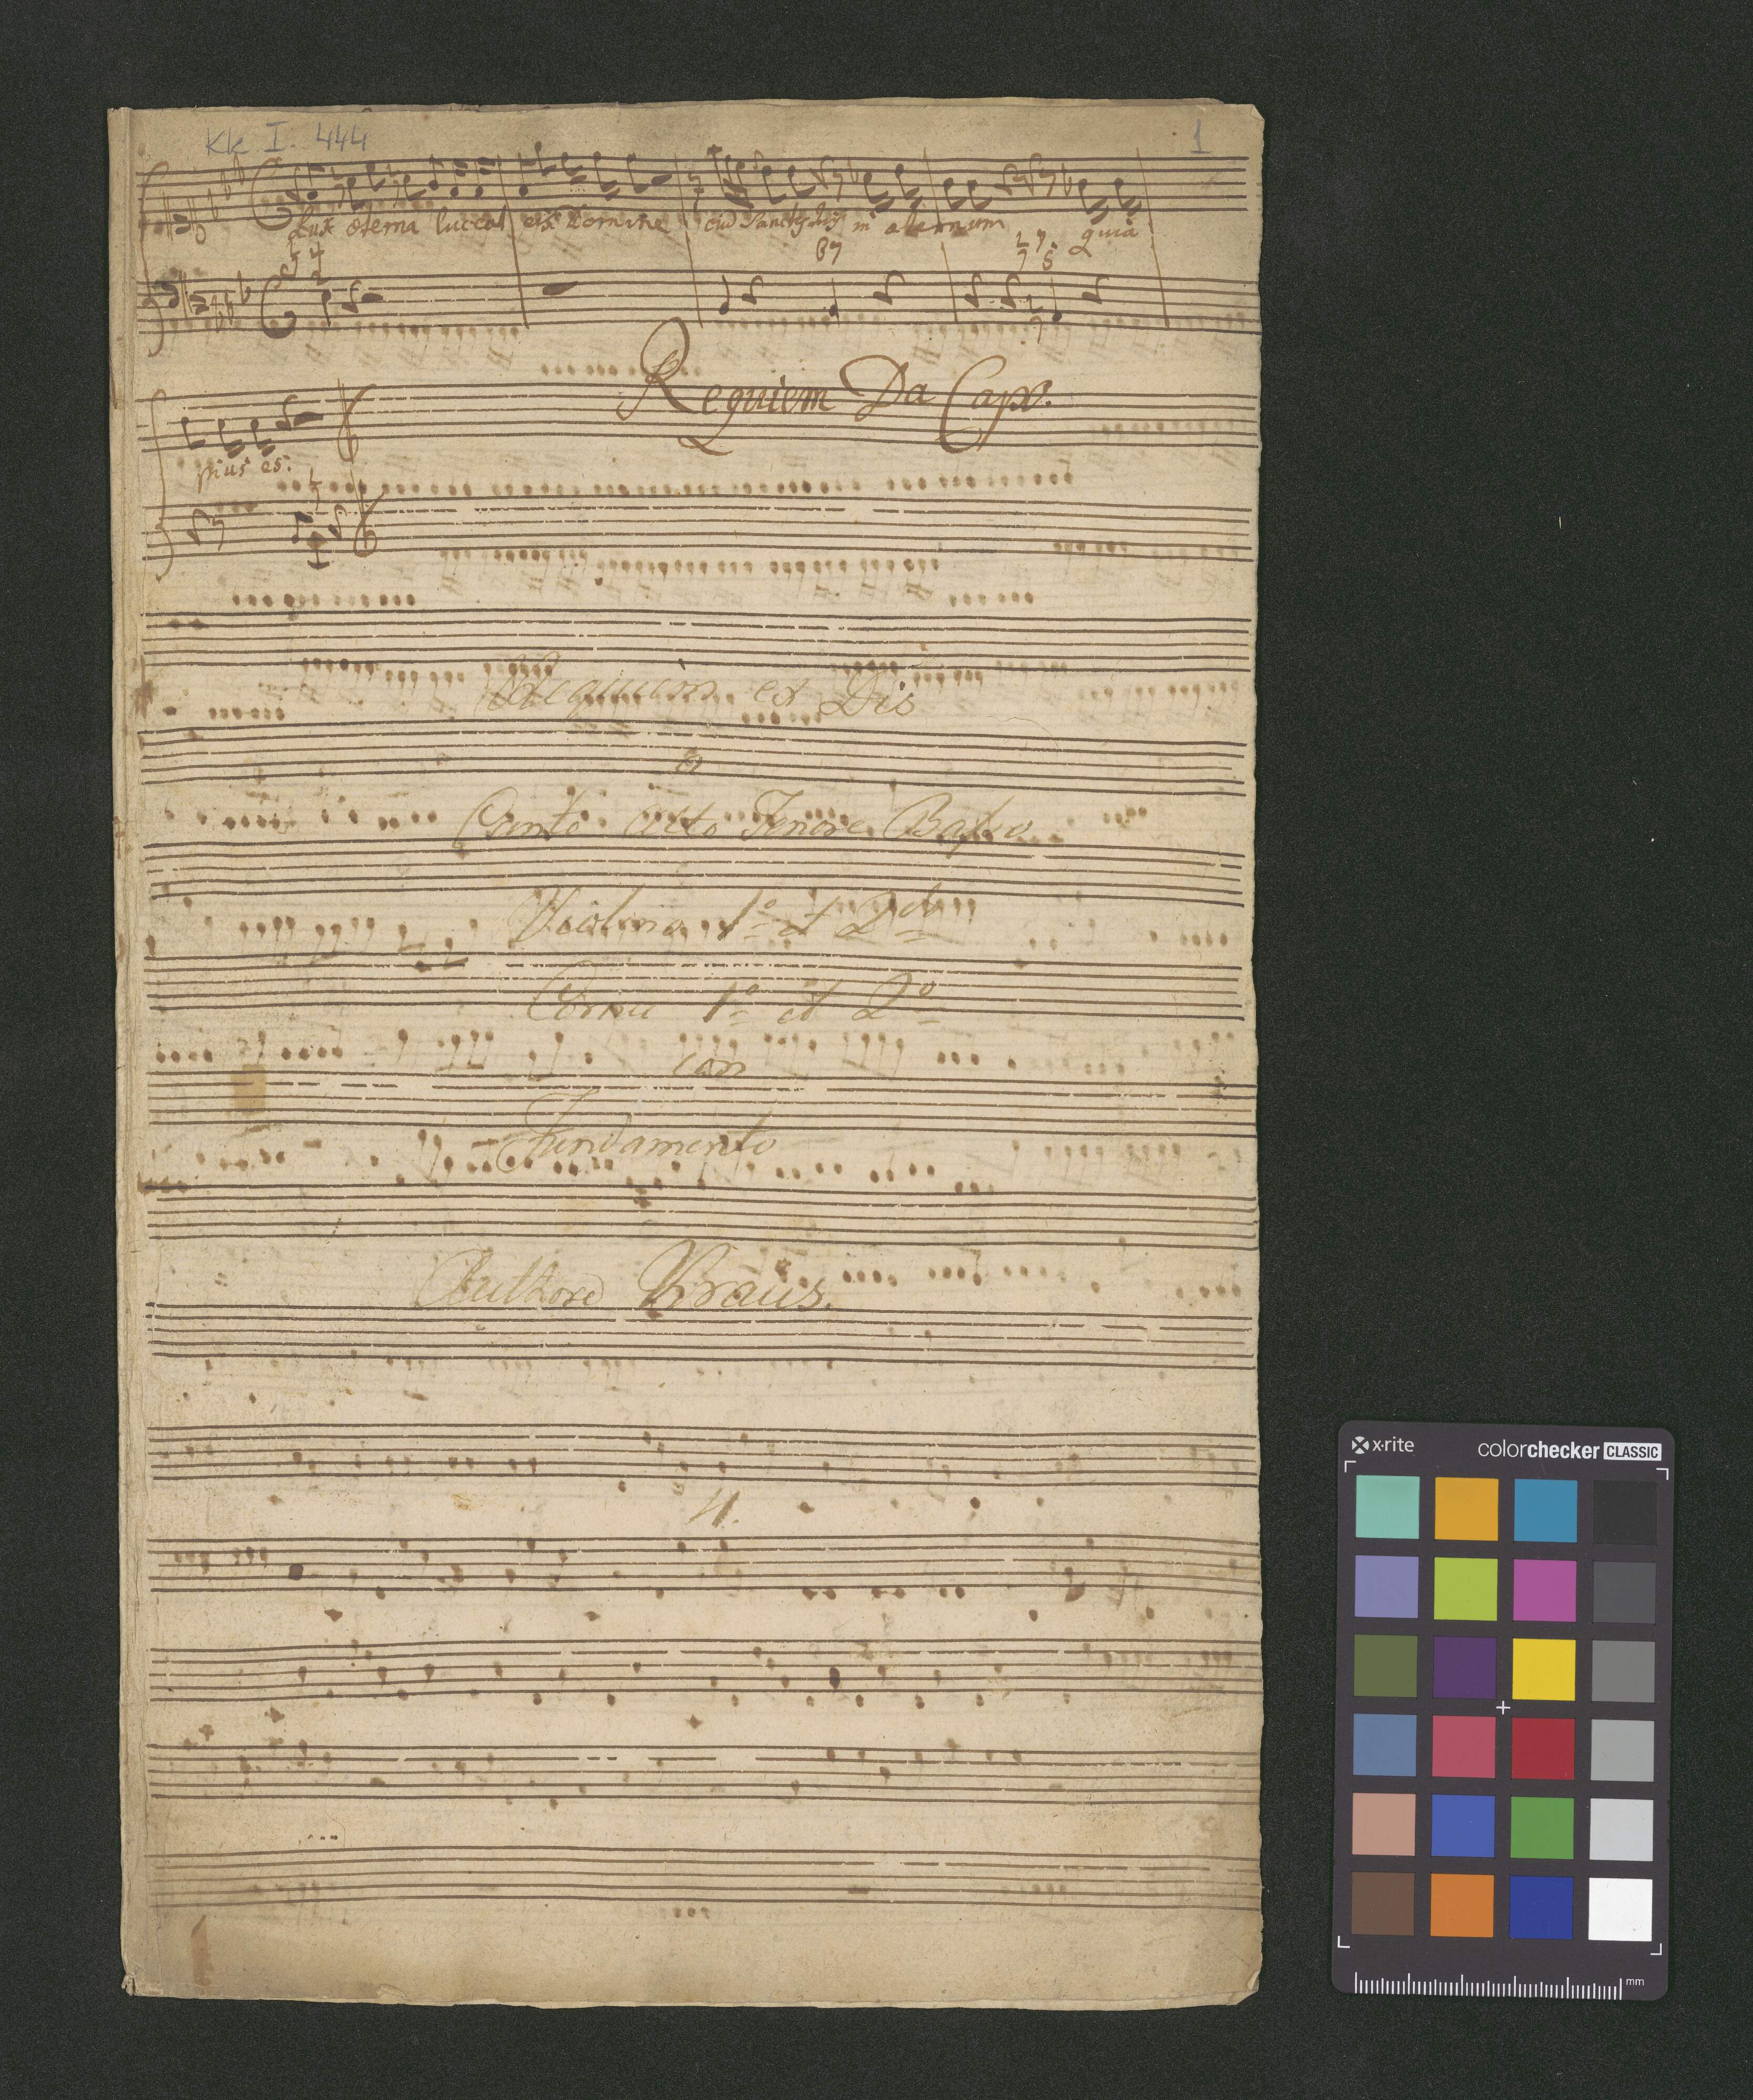 Kk I. 444
1
Lux eterna luceat eis Domine cum sanctis tuis in eternum quia
Requiem Da Capo.
pius es.
Requiem ex Dis
a
Canto Alto Tenore Basso
Violino 1º et 2do
Cornu 1º et 2º
con
Fundamento
Authore Kraus.
4.
x·rite colorchecker CLASSIC
mm